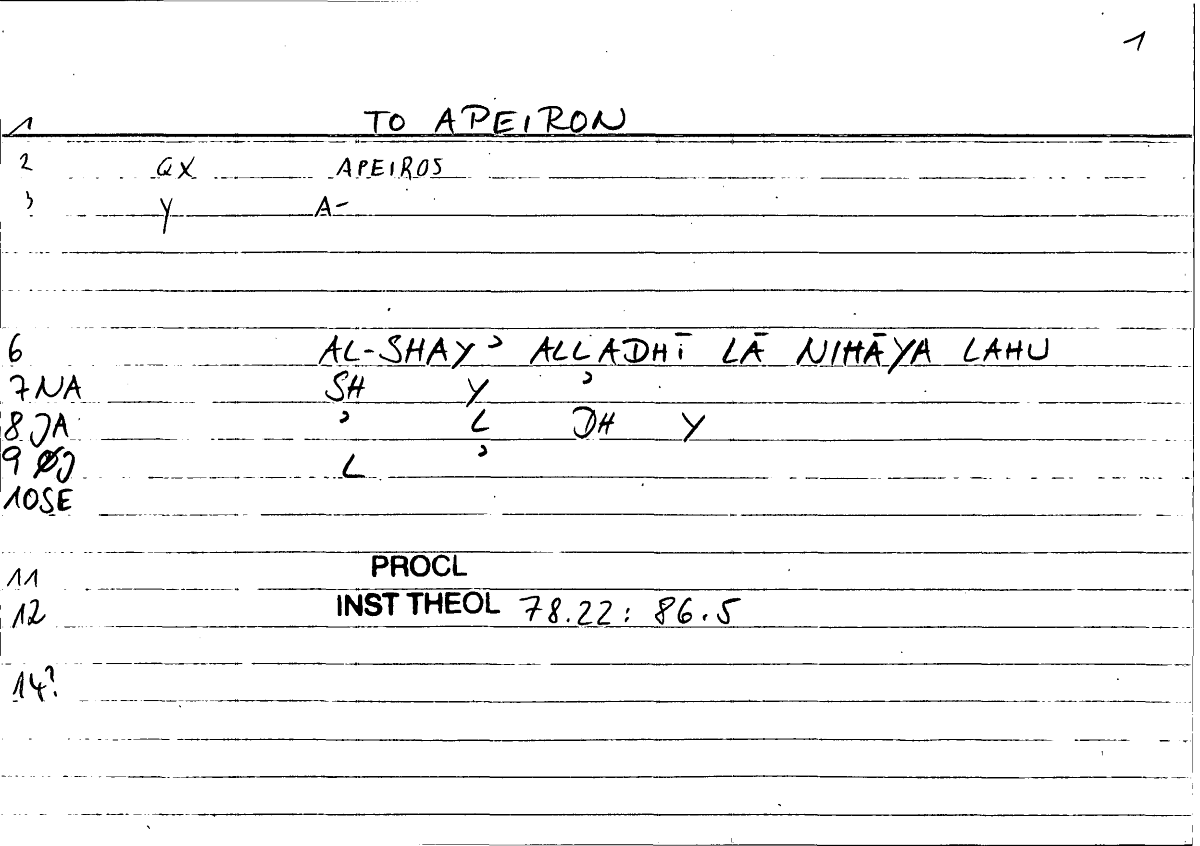 1
1 TO APEIRON
2 QX APEIROS
3 Y A-
6 AL-SHAYʾ ALLADHĪ LĀ NIHĀYA LAHU
7 NA SH Y ʾ
8 JA ʾ L DH Y
9 ØJ L ʾ
10 SE
11 PROCL
12 INST THEOL 78.22: 86.5
14?